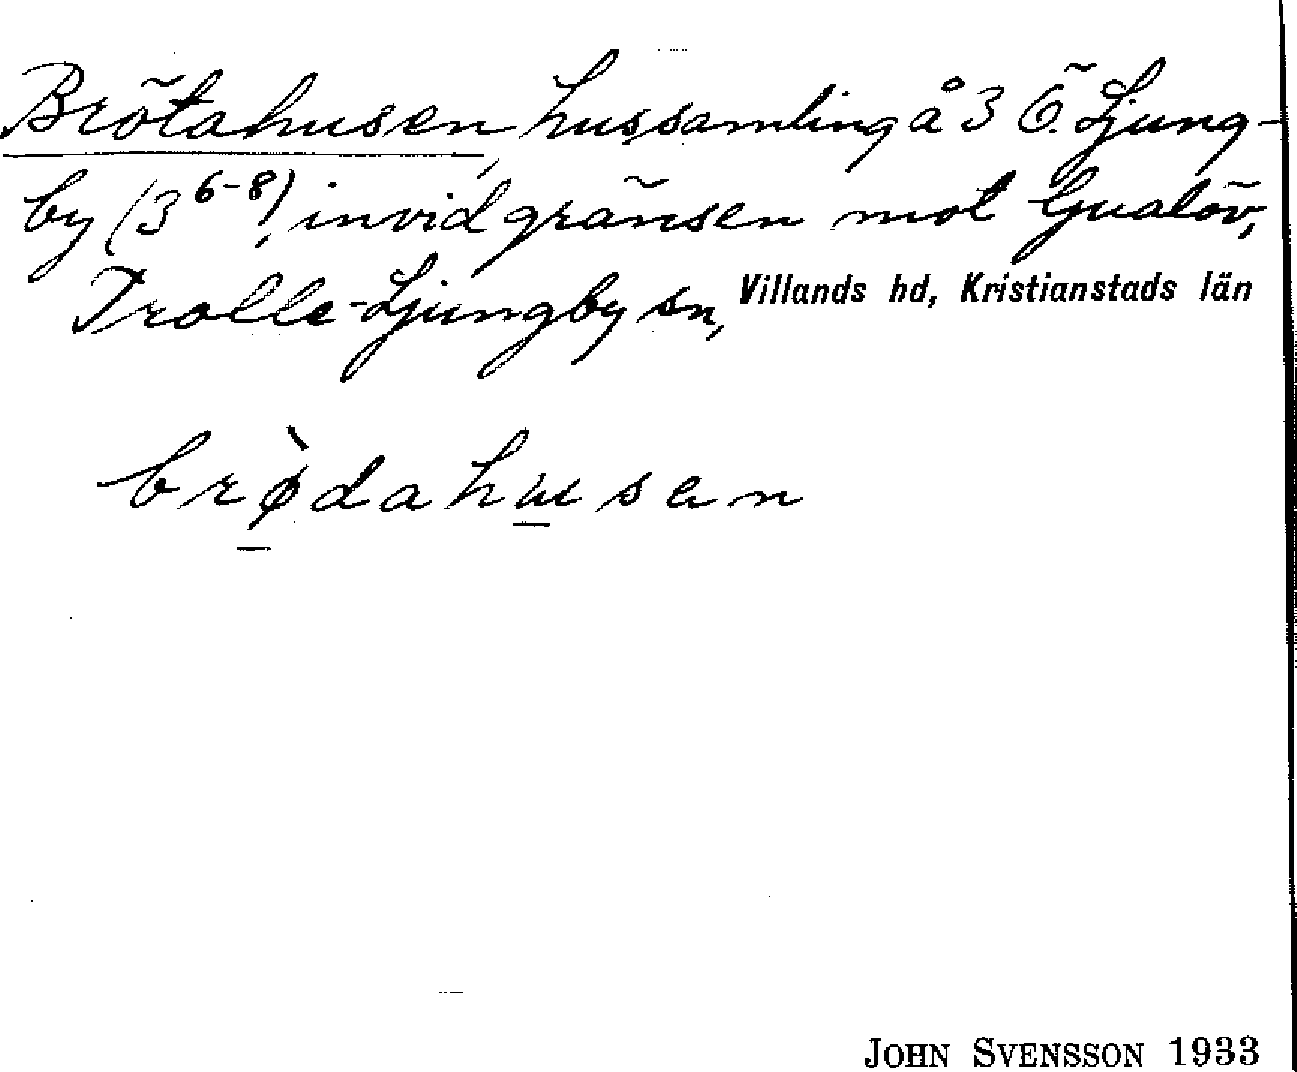 Brötahusen, hussamling å 3 Ö. Ljung-
by (3 6-8), invid gränsen mot Gualöv,
Trolle-Ljungby sn, Villands hd, Kristianstads län
brø̀dahusen
JOHN SVENSSON 1933